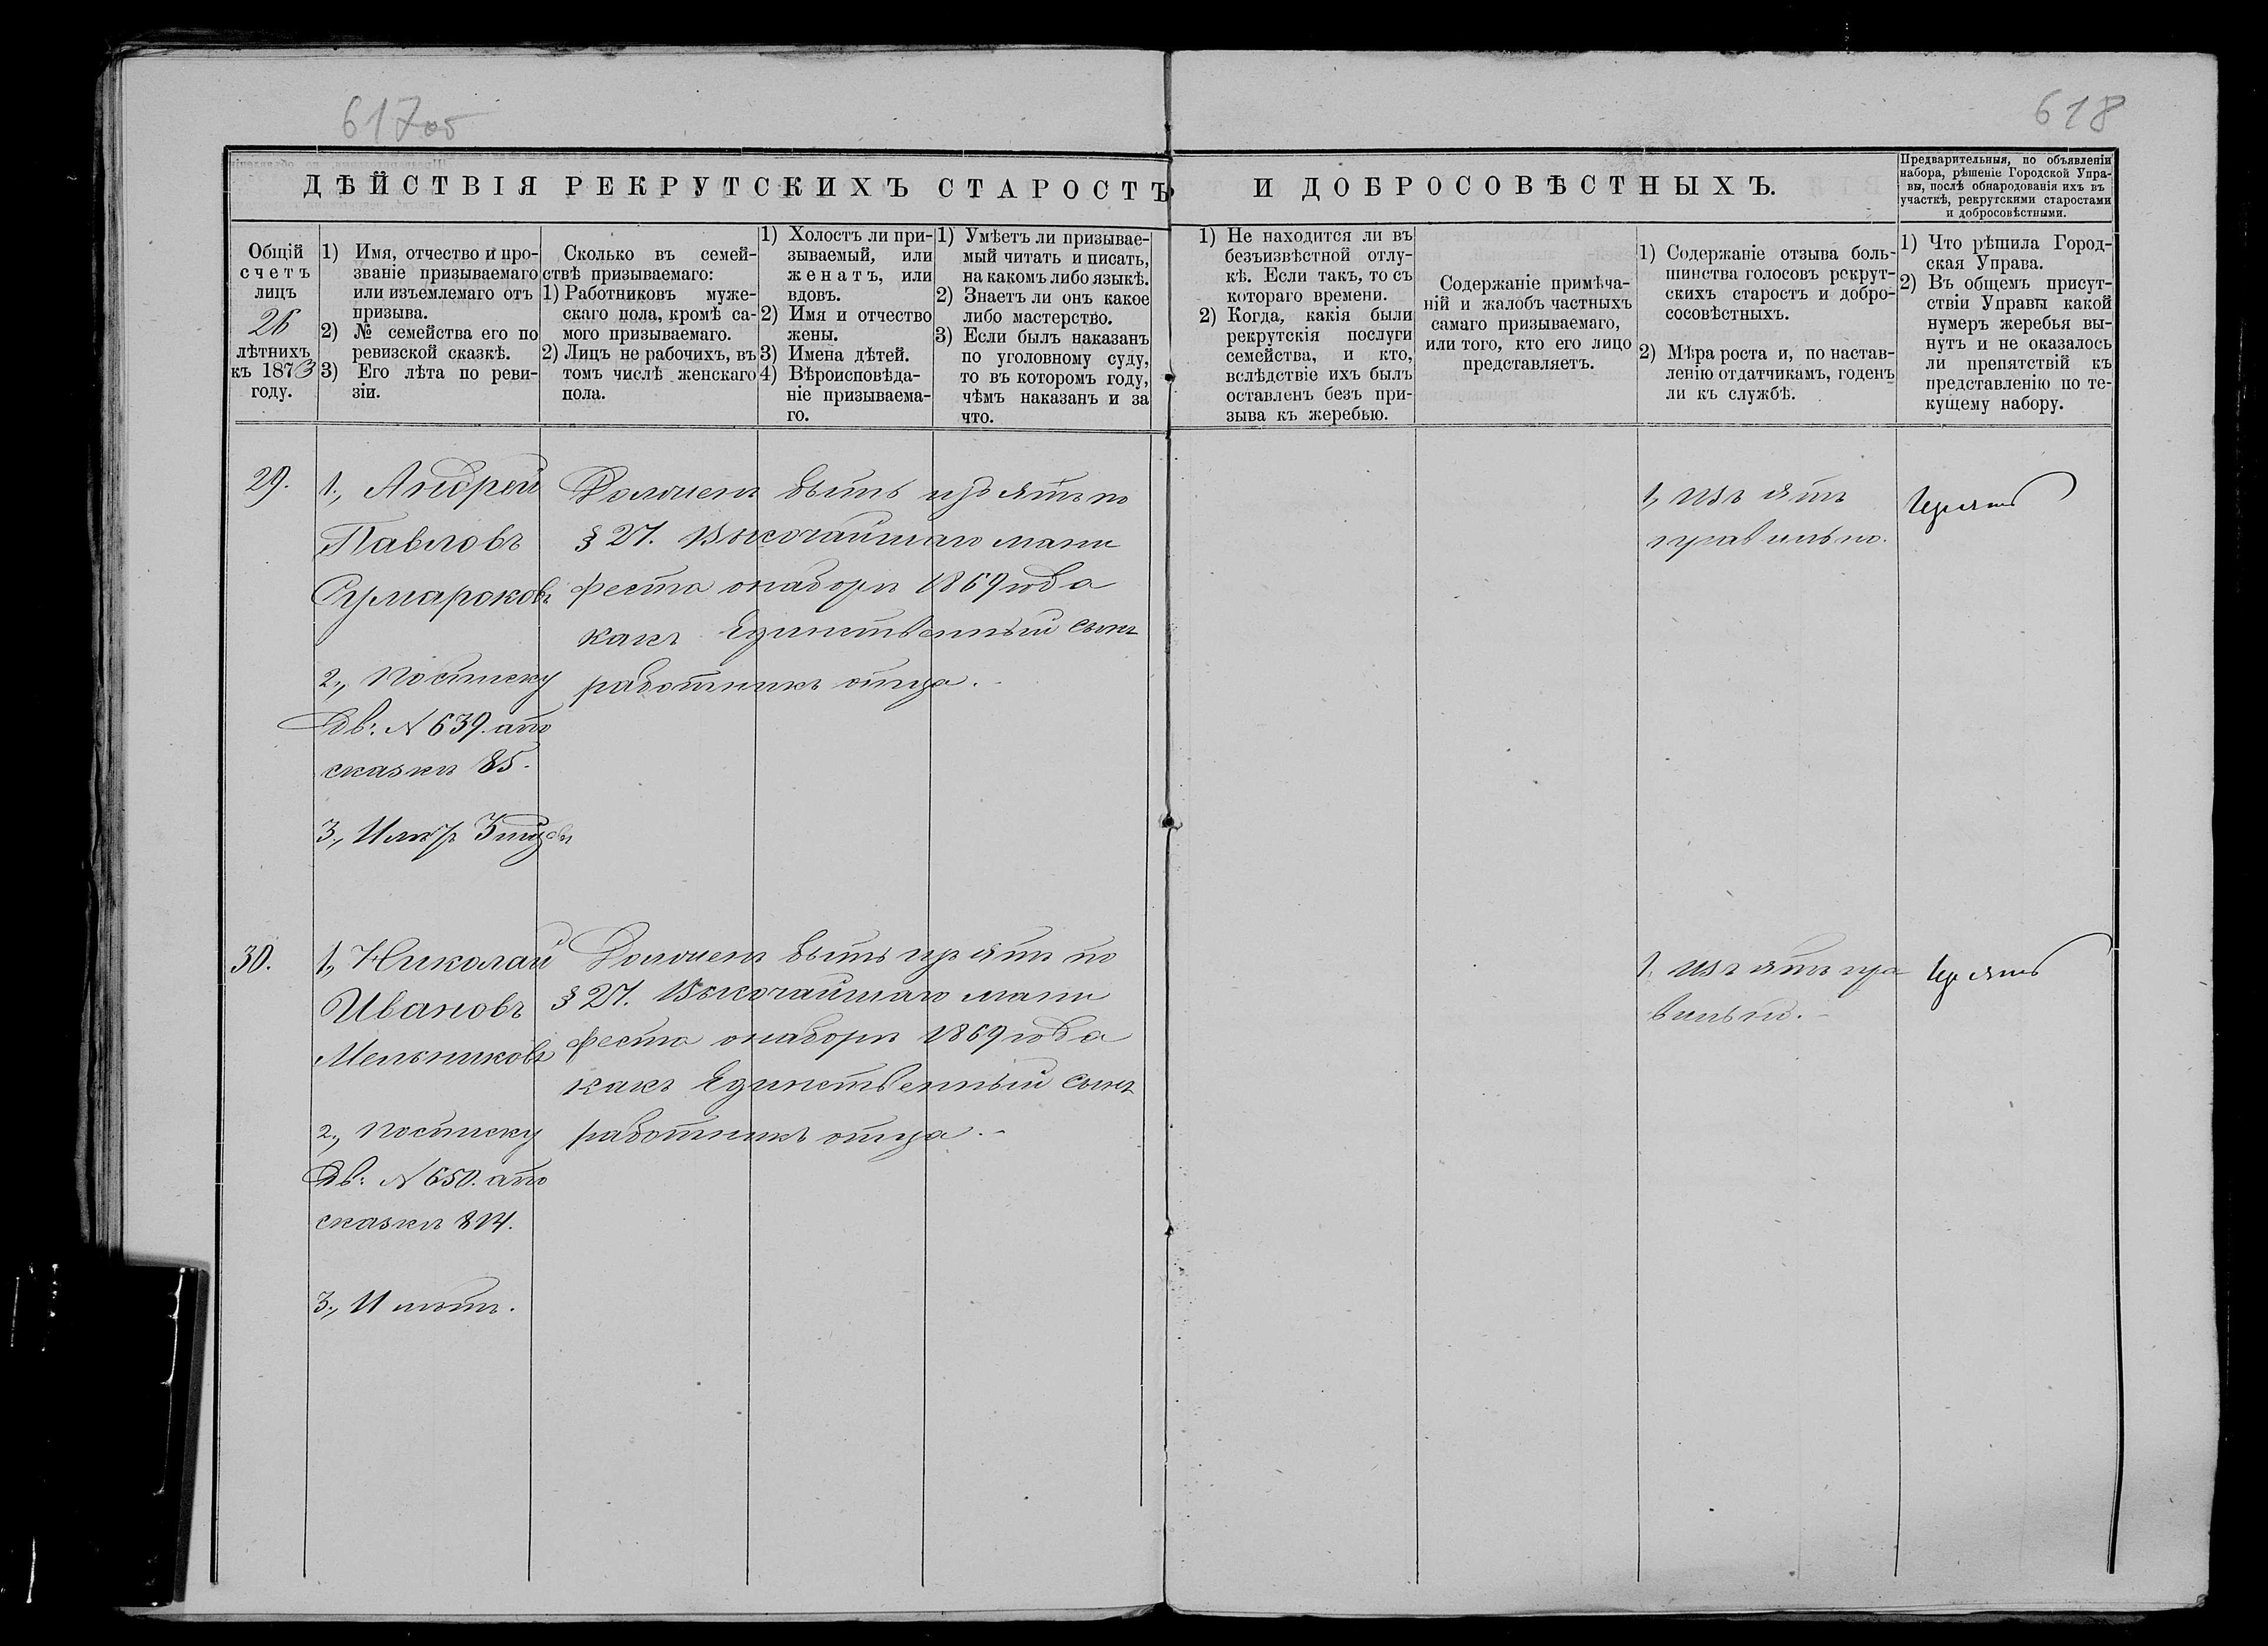 617об
618
ДѢЙСТВІЯ РЕКРУТСКИХЪ СТАРОСТЪ И ДОБРОСОВѢСТНЫХЪ.
Предварительныя, по объявленіи
набора, рѣшеніе Городской Упра-
вы, послѣ обнародованія ихъ въ
участкѣ, рекрутскими старостами
и добросовѣстными.
Общій
счетъ
лицъ
26
лѣтнихъ
къ 1873
году.
1) Имя, отчество и про-
званіе призываемаго
или изъемлемаго отъ
призыва.
2) № семейства его по
ревизской сказкѣ.
3) Его лѣта по реви-
зіи.
Сколько въ семей-
ствѣ призываемаго:
1) Работниковъ муже-
скаго пола, кромѣ са-
мого призываемаго.
2) Лицъ не рабочихъ, въ
томъ числѣ женскаго
пола.
1) Холостъ ли при-
зываемый, или
женатъ, или
вдовъ.
2) Имя и отчество
жены.
3) Имена дѣтей.
4) Вѣроисповѣда-
ніе призываема-
го.
1) Умѣетъ ли призывае-
мый читать и писать,
на какомъ либо языкѣ.
2) Знаетъ ли онъ какое
либо мастерство.
3) Если былъ наказанъ
по уголовному суду,
то въ которомъ году,
чѣмъ наказанъ и за
что.
1) Не находится ли въ
безъизвѣстной отлу-
кѣ. Если такъ, то съ
котораго времени.
2) Когда, какія были
рекрутскія послуги
семейства, и кто,
вслѣдствіе ихъ былъ
оставленъ безъ при-
зыва къ жеребью.
Содержаніе примѣча-
ній и жалобъ частныхъ
самаго призываемаго,
или того, кто его лицо
представляетъ.
1) Содержаніе отзыва боль-
шинства голосовъ рекрут-
скихъ старостъ и добро-
сосовѣстныхъ.
2) Мѣра роста и, по настав-
ленію отдатчикамъ, годенъ
ли къ службѣ.
1) Что рѣшила Город-
ская Управа.
2) Въ общемъ присут-
ствіи Управы какой
нумеръ жеребья вы-
нутъ и не оказалось
ли препятствій къ
представленію по те-
кущему набору.
29.
1., Андрей
Павловъ
Сумароковъ
2., Посписку
Дв: N 639. апо
сказкѣ 85.
3., 7
Долженъ быть изъятъ по
§ 27. Высочайшаго мани
феста онаборѣ 1869 года
какъ Единственный сынъ
работникъ отца.
1, изъятъ
правильно.
Изъятъ
30.
1, Николай
Ивановъ
Мельниковъ
2., посписку
Дв: N 650. апо
сказкѣ 814.
3.,
Долженъ быть изъятъ по
§ 27. Высочайшаго мани
феста онаборѣ 1869 года
какъ Единственный сынъ
работникъ отца.
1, изъятъ пра
вильно.
Изъятъ